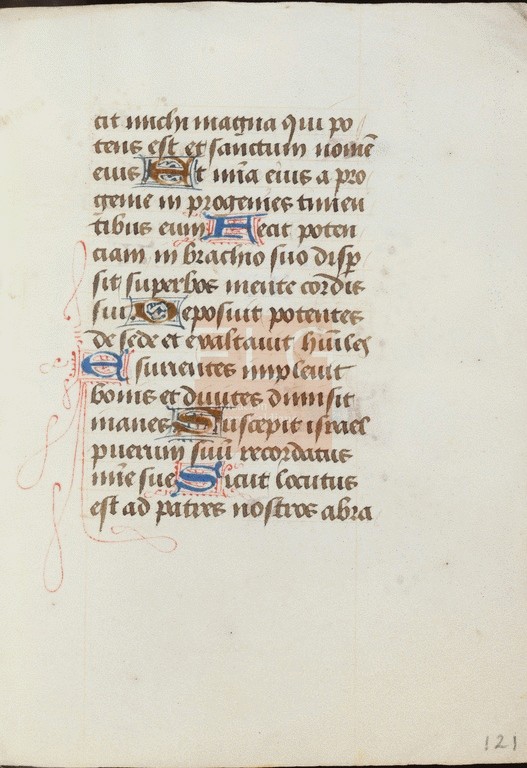 cit michi magna qui po
tens est et sanctum nomē
eius Et mīa eius a pro
genie in progenies timen
tibus eum Fecit poten
ciam in brachio suo disp̄
sit superbos mente cordis
sui Deposuit potentes
de sede et exaltauit huīles
Esurientes impleuit
bonis et diuites dimisit
inanes Suscepit israel
puerum suū recordatus
mīe sue Sicut locutus
est ad patres nostros abra
121